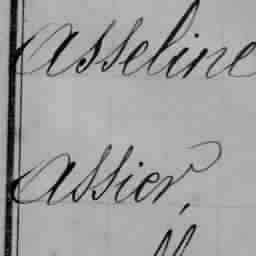 Asseline
Assier,